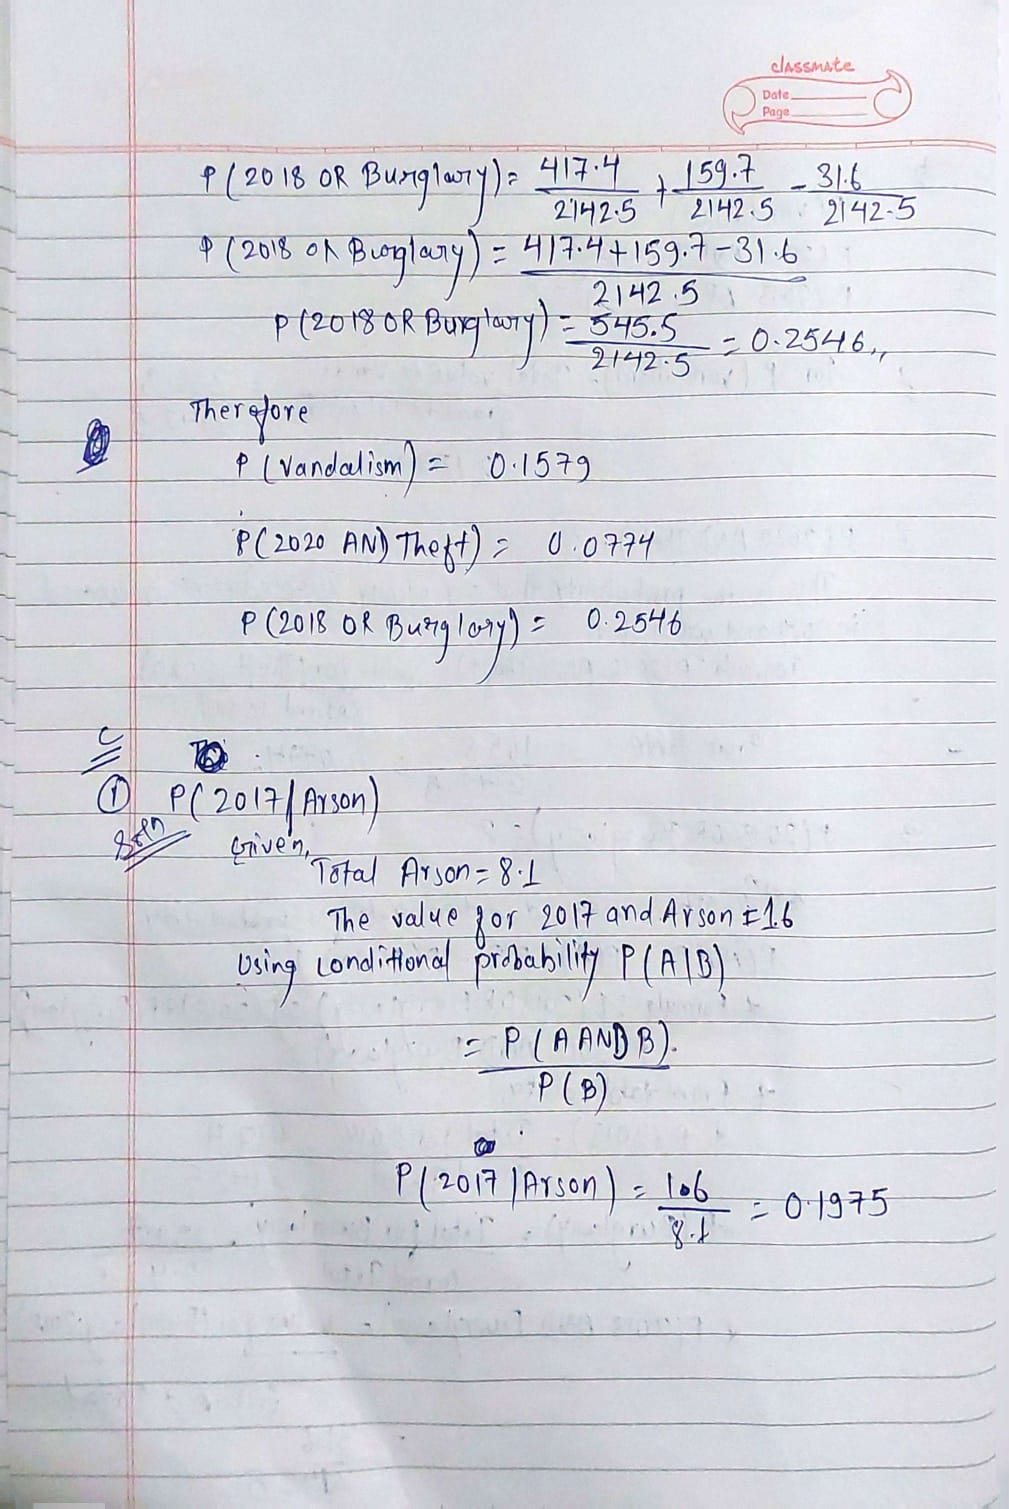 classmate
Date
Page
P(2018 OR Burglary) = 417.4/2142.5 + 159.7/2142.5 - 31.6/2142.5
P(2018 OR Burglary) = 417.4+159.7-31.6/2142.5
P(2018 OR Burglary) = 545.5/2142.5 = 0.2546,,
Therefore
P(Vandalism) = 0.1579
P(2020 AND Theft) = 0.0774
P(2018 OR Burglary) = 0.2546
C
① P(2017/Arson)
Soln
Given,
Total Arson = 8.1
The value for 2017 and Arson = 1.6
Using conditional probability P(A|B)
= P(A AND B)./P(B)
P(2017|Arson) = 1.6/8.1 = 0.1975